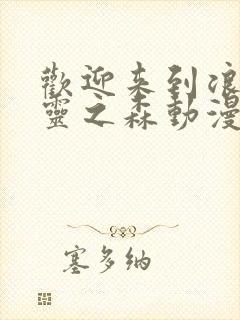 歡迎来到浪
靈之森動漫
塞多纳